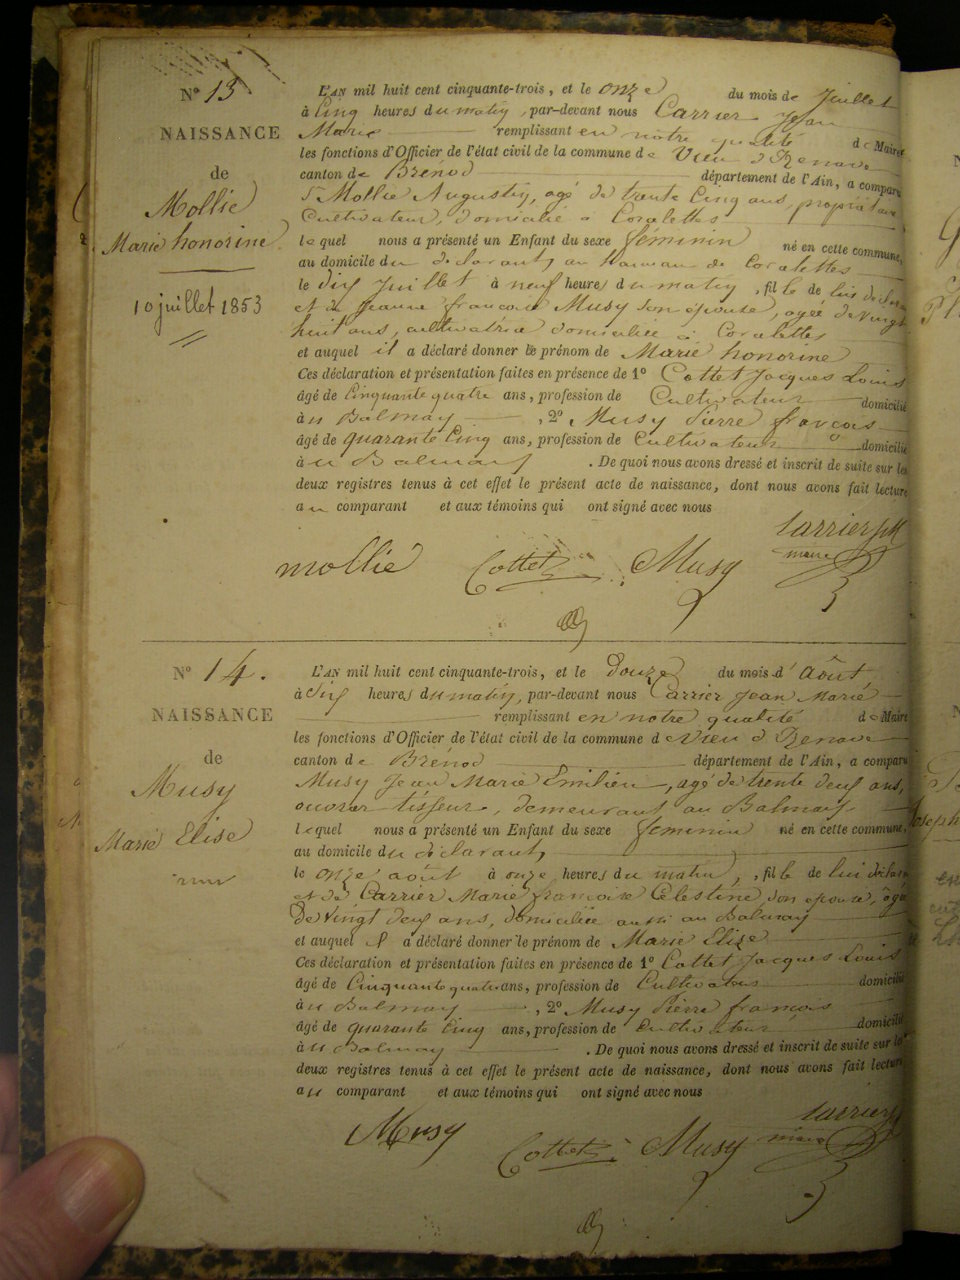 N° 13
NAISSANCE
de
Mollie
Marie honorine
10 juillet 1853
L'AN mil huit cent cinquante-trois, et le onze du mois de Juillet
à Cinq heures du matin, par-devant nous Carrier Jean
Marie remplissant en notre qualité de Maire
les fonctions d'Officier de l'état civil de la commune de Vieu d Izenave
canton de Brénod département de l'Ain, a comparu
Mollie Augustin, agé de trente Cinq ans, propriétaire
Cultivateur, domicilié à Coralettes
lequel nous a présenté un Enfant du sexe féminin né en cette commune,
au domicile du déclarant, au hameau de Coralettes
le dix Juillet à neuf heures du matin, fille de lui déclarant
et de Jeanne françoise Musy son épouse, agée de vingt
huit ans, cultivatrice domiciliée à Coralettes
et auquel il a déclaré donner le prénom de Marie honorine
Ces déclaration et présentation faites en présence de 1° Cottet Jacques Louis
âgé de Cinquante quatre ans, profession de Cultivateur domicilié
à u Balmay , 2° Musy Pierre françois
âgé de quarante Cinq ans, profession de Cultivateur domicilié
à u Balmay . De quoi nous avons dressé et inscrit de suite sur les
deux registres tenus à cet effet le présent acte de naissance, dont nous avons fait lecture
au comparant et aux témoins qui ont signé avec nous
mollié Cottet Musy Carrier JM
maire
N° 14.
NAISSANCE
de
Musy
Marie Elise
L'AN mil huit cent cinquante-trois, et le Douze du mois d'Août
à Six heures du matin, par-devant nous Carrier Jean Marie
remplissant en notre qualité de Maire
les fonctions d'Officier de l'état civil de la commune de Vieu d Izenave
canton de Brénod département de l'Ain, a comparu
Musy Jean Marie Emilien, agé de trente deux ans,
ouvrier tisseur, demeurant au Balmay
lequel nous a présenté un Enfant du sexe féminin né en cette commune,
au domicile du déclarant,
le onze août à onze heures du matin, fille de lui déclarant
et de Carrier Marie françoise Célestine son épouse, âgée
De vingt deux ans, domiciliée aussi au Balmay
et auquel il a déclaré donner le prénom de Marie Elise
Ces déclaration et présentation faites en présence de 1° Cottet Jacques Louis
âgé de Cinquante quatre ans, profession de Cultivateur domicilié
à u Balmay , 2° Musy Pierre françois
âgé de quarante Cinq ans, profession de Cultivateur domicilié
à u Balmay . De quoi nous avons dressé et inscrit de suite sur les
deux registres tenus à cet effet le présent acte de naissance, dont nous avons fait lecture
au comparant et aux témoins qui ont signé avec nous
Musy Cottet Musy Carrier JM
maire